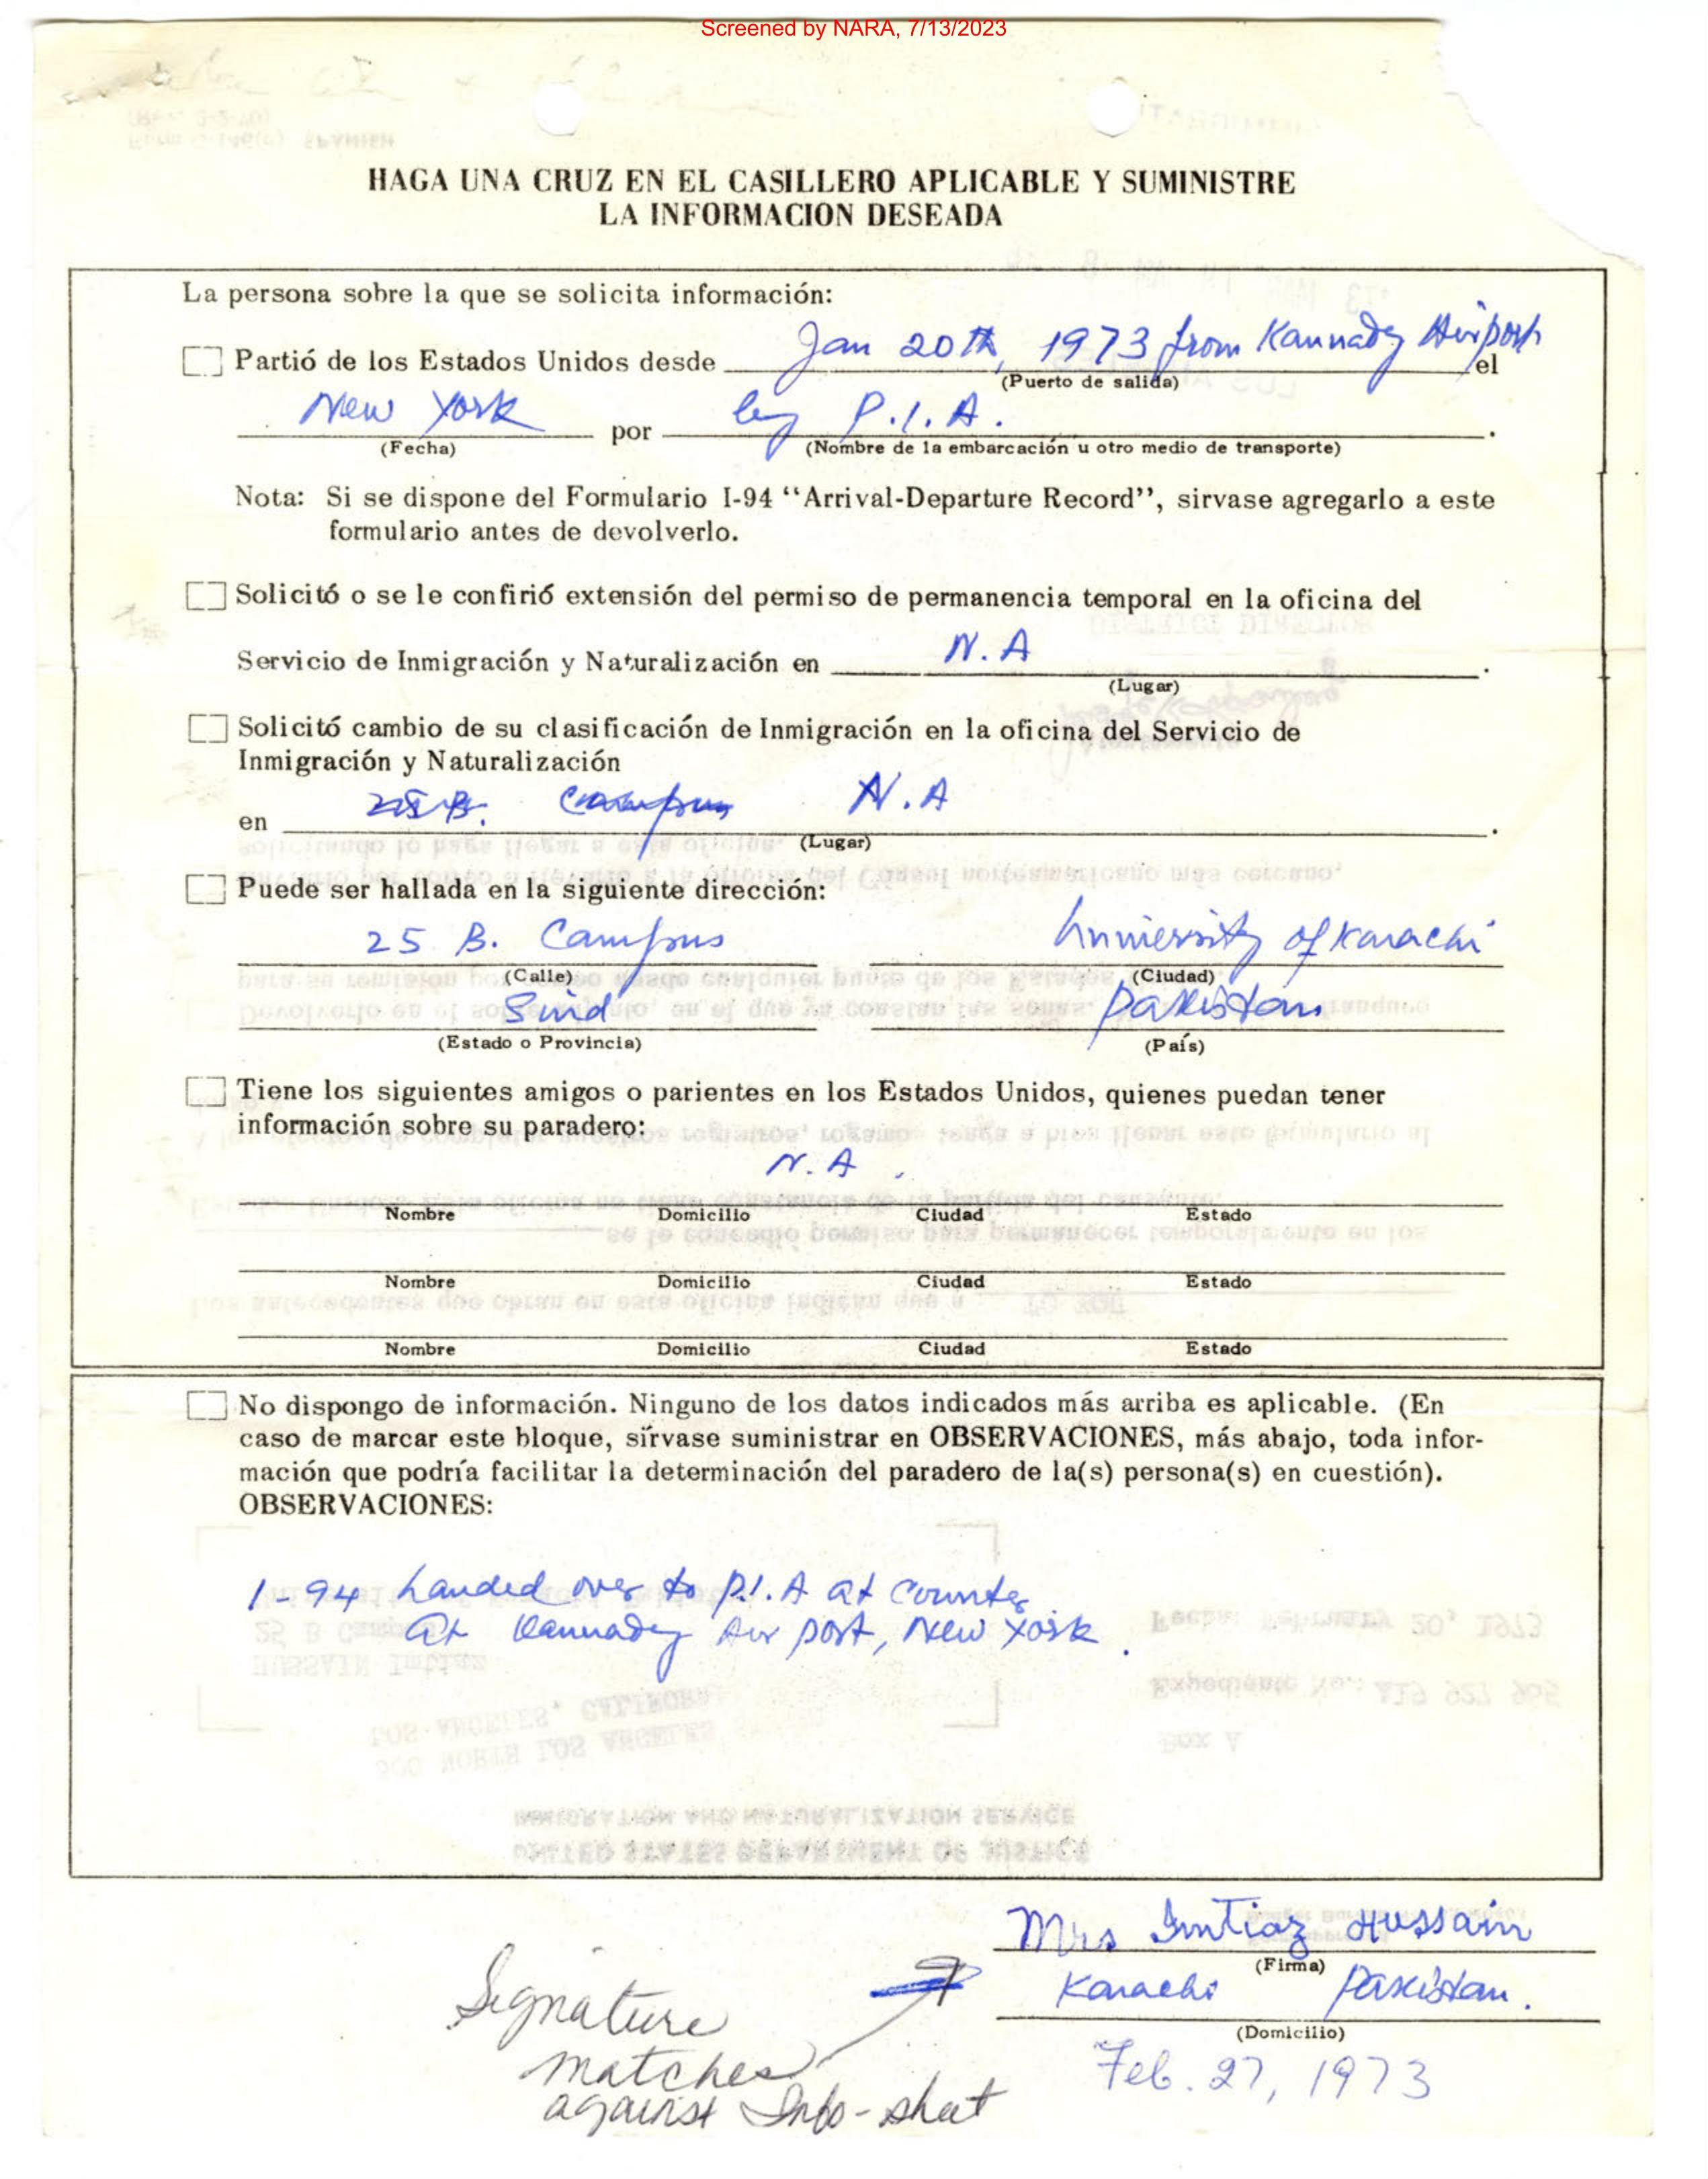 Screened by NARA, 7/13/2023
HAGA UNA CRUZ EN EL CASILLERO APLICABLE Y SUMINISTRE
LA INFORMACION DESEADA
La persona sobre la que se solicita información:
Partió de los Estados Unidos desde Jan 20th, 1973 from Kannady Airport el
(Puerto de salida)
New York por by P.I.A.
(Fecha) (Nombre de la embarcación u otro medio de transporte)
Nota: Si se dispone del Formulario I-94 “Arrival-Departure Record”, sirvase agregarlo a este
formulario antes de devolverlo.
Solicitó o se le confirió extensión del permiso de permanencia temporal en la oficina del
Servicio de Inmigración y Naturalización en N.A.
(Lugar)
Solicitó cambio de su clasificación de Inmigración en la oficina del Servicio de
Inmigración y Naturalización
en 25 B. Campus N.A.
(Lugar)
Puede ser hallada en la siguiente dirección:
25 B. Campus University of Karachi
(Calle) (Ciudad)
Sind Pakistan
(Estado o Provincia) (País)
Tiene los siguientes amigos o parientes en los Estados Unidos, quienes puedan tener
información sobre su paradero:
N.A.
Nombre Domicilio Ciudad Estado
Nombre Domicilio Ciudad Estado
Nombre Domicilio Ciudad Estado
No dispongo de información. Ninguno de los datos indicados más arriba es aplicable. (En
caso de marcar este bloque, sírvase suministrar en OBSERVACIONES, más abajo, toda infor-
mación que podría facilitar la determinación del paradero de la(s) persona(s) en cuestión).
OBSERVACIONES:
1-94 handed over to P.I.A at counter
at Kannady Air port, New York.
Mrs Imtiaz Hussain
(Firma)
Karachi Pakistan.
(Domicilio)
Feb. 27, 1973
Signature
matches
against Info-sheet